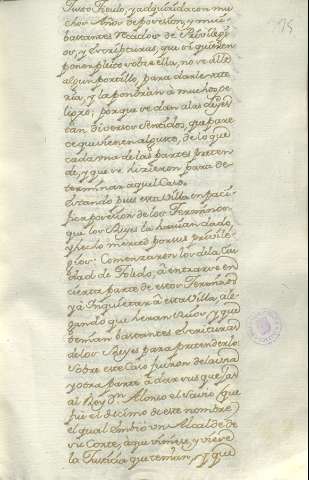 Justo Titulo, y adquirida con mu
chos Años de posesion, y mui
bastantes recados de Privilegi
os, y Escripturas, que si quieren
poner pleito sobre ella, no se alle
algun portillo, para darle
y la pondran à mucho pe
ligro; porque se dan a las Leyes
tan diversos sentidos, que pare
ce que vienen al justo, de lo que
cada una de las partes preten
de, y que se hizieron para de
terminar aquel Caso.
Estando pues esta Villa en paci
fica posesion de los Terminos
que los Reyes la havian dado
y hecho merced por sus privile
gios: Comenzaron los de la Ciu
dad de Toledo, à entrarse en
cierta parte de estos Terminos
y à Inquietar à esta Villa, ale
gando que heran suios, y que
tenian bastantes escrituras
de los Reyes para pretenderlo
Sobre este Caso fueron de la una
y otra parte à dar sus quejas
al Rey Dn. Alonso el Savio (que
fue el decimo de este nombre)
el qual embió un Alcalde de
su Corte, à que viniese, y viese
la Justicia que tenian, y que